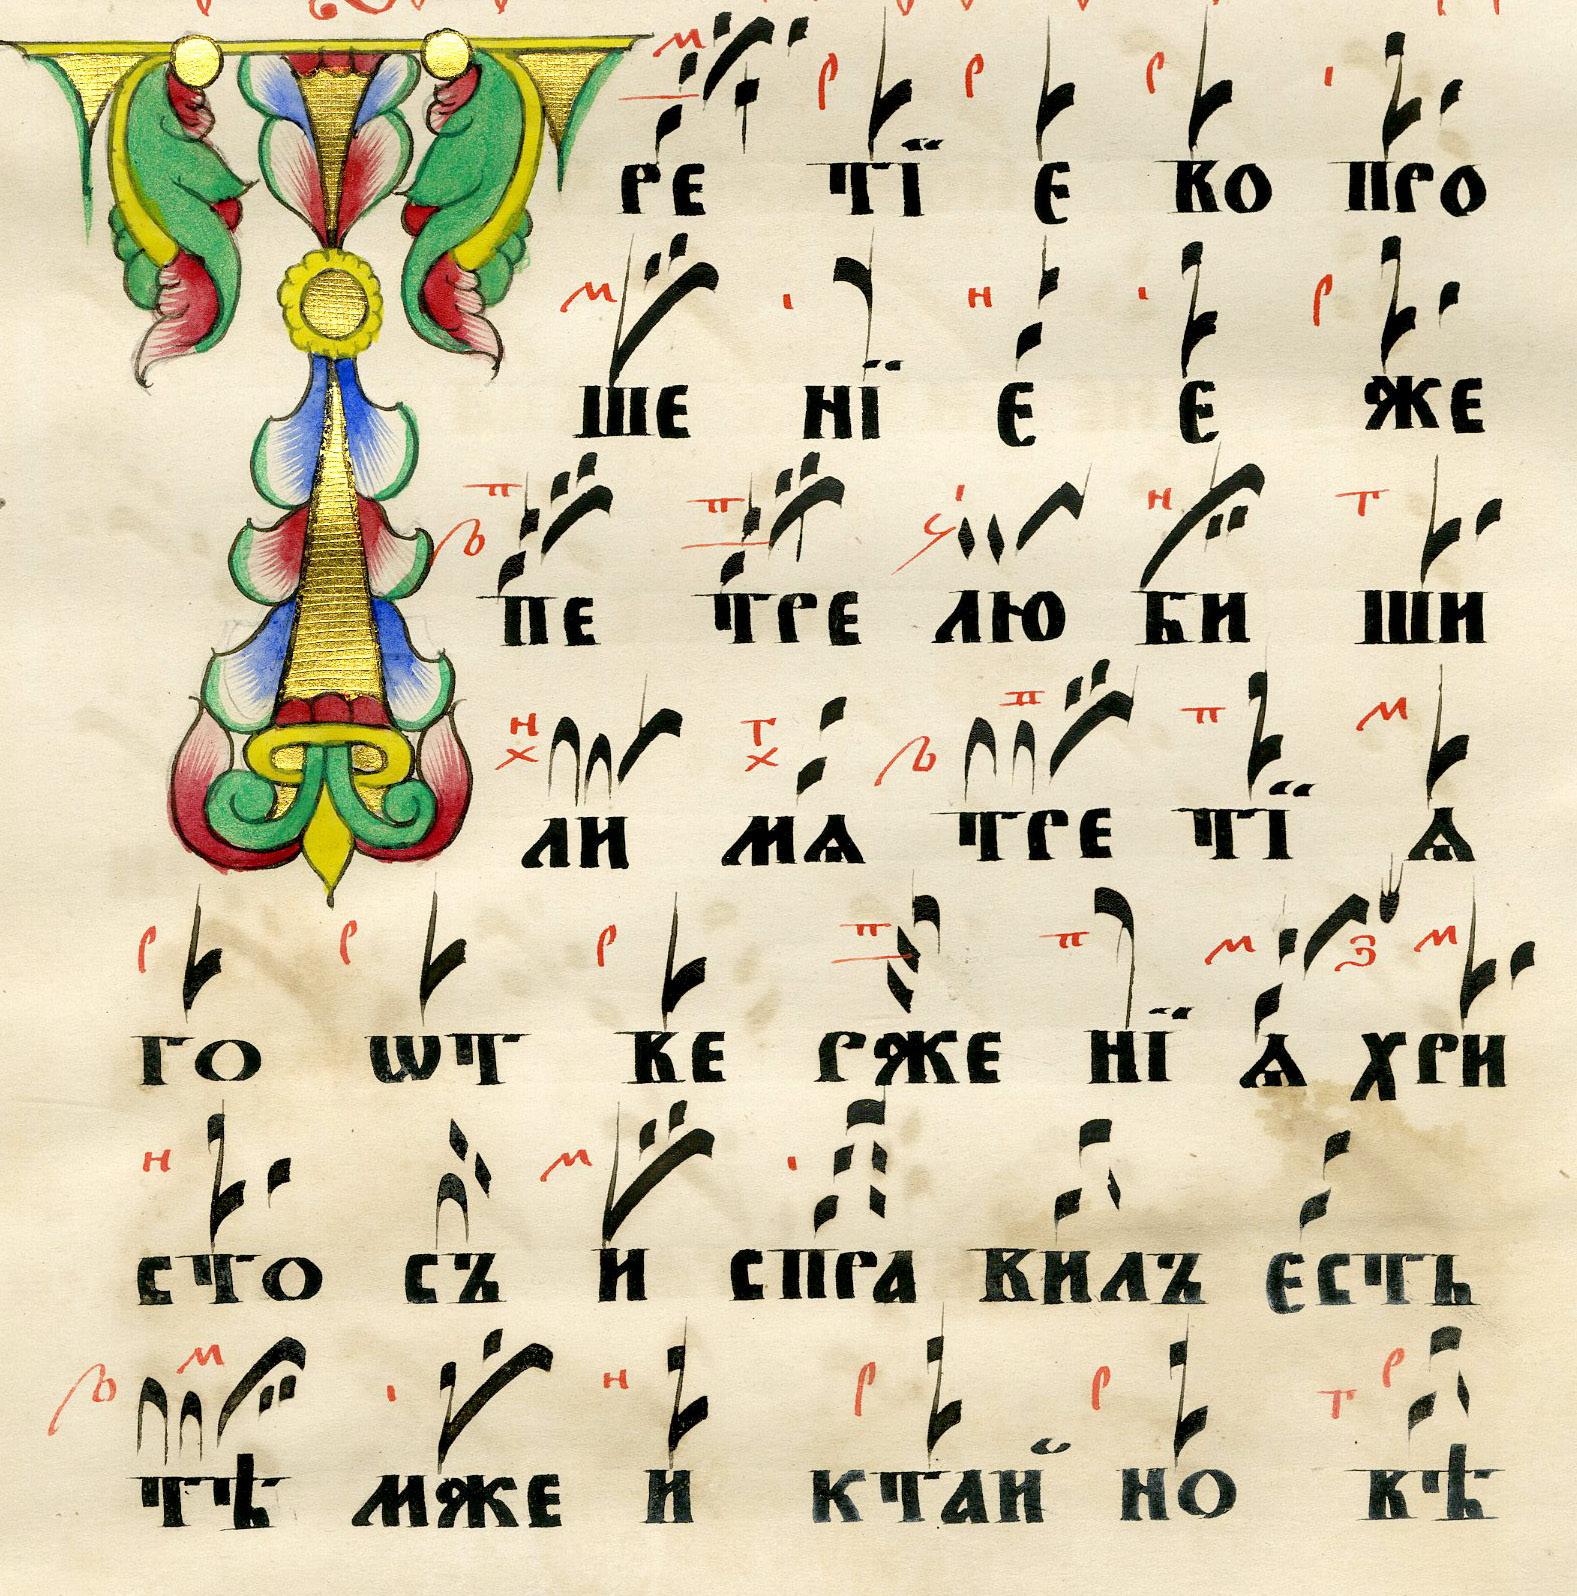 Т РЕ ТЇ Е ВО ПРО
ШЕ НЇ Е Е ЖЕ
ПЕ ТРЕ ЛЮ БИ ШИ
ЛИ МѦ ТРЕ ТЇ Ѧ
ГО ѠТ ВЕ РЖЕ НЇ Ѧ ХРИ
СТО СЪ И СПРА ВИЛЪ ЕСТЬ
ТѢ МЖЕ И КТАЙ НО ВѢ